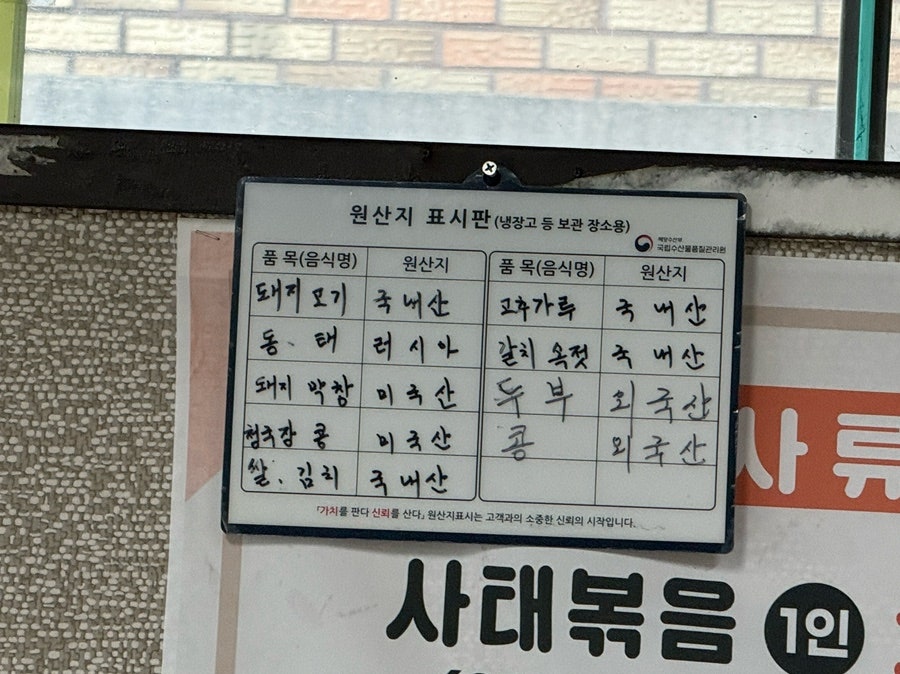 원산지 표시판(냉장고 등 보관 장소용)
해양수산부
국립수산물품질관리원
품 목(음식명) 원산지 품 목(음식명) 원산지
돼지 고기 국내산 고추가루 국 내 산
동. 태 러 시 아 갈치 옥젓 국 내 산
돼지 막창 미 국 산 두 부 외 국 산
청국장 콩 미 국 산 콩 외 국 산
쌀. 김치 국 내 산
「가치를 판다 신뢰를 산다」 원산지표시는 고객과의 소중한 신뢰의 시작입니다.
사류
사태볶음 1인